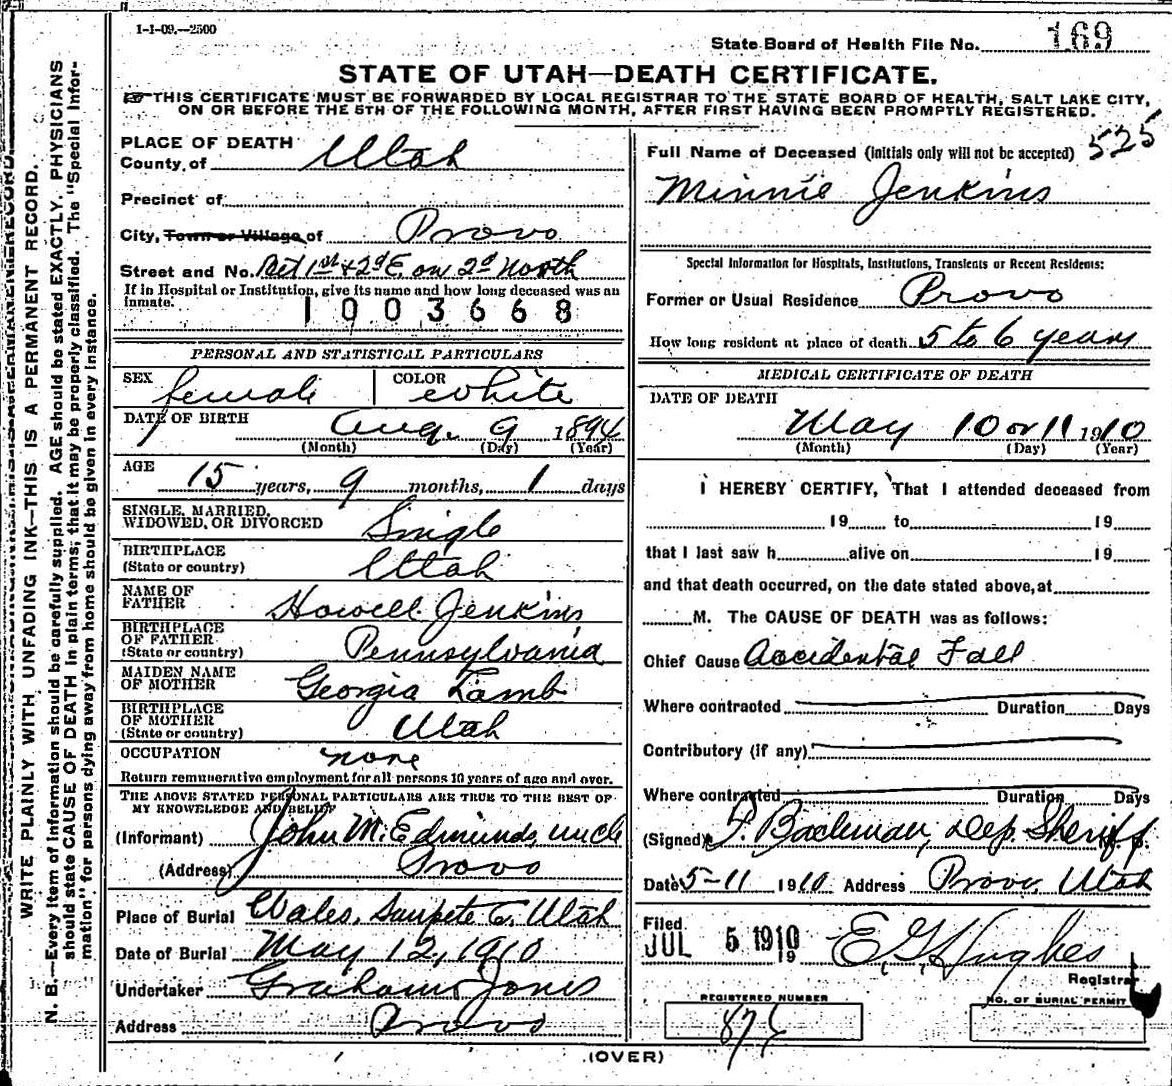 1-1-09.—2500
State Board of Health File No. 169
STATE OF UTAH—DEATH CERTIFICATE.
THIS CERTIFICATE MUST BE FORWARDED BY LOCAL REGISTRAR TO THE STATE BOARD OF HEALTH, SALT LAKE CITY,
ON OR BEFORE THE 5TH OF THE FOLLOWING MONTH, AFTER FIRST HAVING BEEN PROMPTLY REGISTERED.
WRITE PLAINLY WITH UNFADING INK—THIS IS A PERMANENT RECORD.
N. B.—Every item of information should be carefully supplied. AGE should be stated EXACTLY. PHYSICIANS
should state CAUSE OF DEATH in plain terms, that it may be properly classified. The "Special Infor-
mation" for persons dying away from home should be given in every instance.
PLACE OF DEATH
County of Utah
Precinct of
City, Town or Village of Provo
Street and No. Bet 1st & 2d E on 2d North
If in Hospital or Institution, give its name and how long deceased was an
inmate.
1003668
PERSONAL AND STATISTICAL PARTICULARS
SEX female COLOR white
DATE OF BIRTH Aug. 9 1894
(Month) (Day) (Year)
AGE 15 years, 9 months, 1 days
SINGLE, MARRIED,
WIDOWED, OR DIVORCED Single
BIRTHPLACE
(State or country) Utah
NAME OF
FATHER Howell Jenkins
BIRTHPLACE
OF FATHER
(State or country) Pennsylvania
MAIDEN NAME
OF MOTHER Georgia Lamb
BIRTHPLACE
OF MOTHER
(State or country) Utah
OCCUPATION none
Return remunerative employment for all persons 10 years of age and over.
THE ABOVE STATED PERSONAL PARTICULARS ARE TRUE TO THE BEST OF
MY KNOWLEDGE AND BELIEF
(Informant) John M. Edmunds, uncle
(Address) Provo
Place of Burial Wales, Sanpete C. Utah
Date of Burial May 12, 1910
Undertaker Graham Jones
Address Provo
Full Name of Deceased (Initials only will not be accepted) 525
Minnie Jenkins
Special Information for Hospitals, Institutions, Transients or Recent Residents:
Former or Usual Residence Provo
How long resident at place of death 5 to 6 years
MEDICAL CERTIFICATE OF DEATH
DATE OF DEATH
May 10 or 11 1910
(Month) (Day) (Year)
I HEREBY CERTIFY, That I attended deceased from
19 to 19
that I last saw h alive on 19
and that death occurred, on the date stated above, at
M. The CAUSE OF DEATH was as follows:
Chief Cause Accidental Fall
Where contracted Duration Days
Contributory (if any)
Where contracted Duration Days
(Signed) Backman, Dep. Sheriff
Date 5-11 1910 Address Provo, Utah
Filed
JUL 5 1910 19 E G Hughes
Registrar
REGISTERED NUMBER
NO. OF BURIAL PERMIT
(OVER)